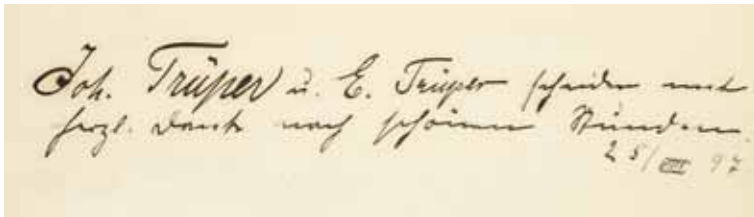 Joh. Trüper u. E. Trüper scheiden mit
herzl. Dank nach schönen Stunden.
25/VIII 97